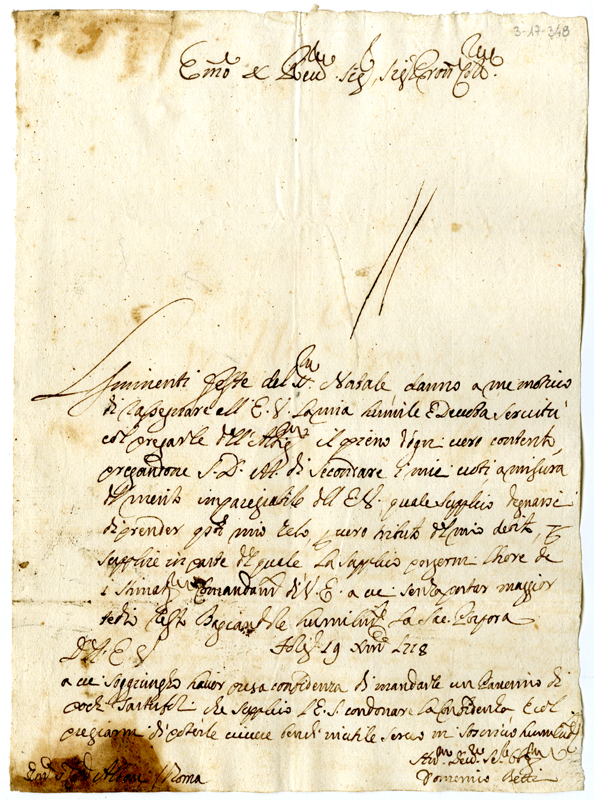 3-17-348
Em̃o e Reu.mo Sig.r, Sig.r Pron Coll.mo
L'Iminenti feste del S.mo Natale danno a me motivo
di rassegnare all'E. V. la mia humile e Devota servitù
col pregarle dall'Altiss.mo il pieno d'ogni vero contento,
pregandone S. D. M. di secondare i miei voti, a misura
del merito impareggiabile dell'E. V. quale supplico degnarsi
di prender q.to mio zelo p vero tributo del mio debito, e p
supplire in parte del quale la supplico porgermi l'honore de
i stimat.mi Comandam.ti di V. E. a cui senza portar maggior
tedio resto Bagiandole humilm.te la Sac. Porpora
D. V. E.
19 1728
a cui soggiungho haver presa confidenza di mandarle un Panerino di
pochi Tartufoli che supplico l'E. V. condonare la Confidenza e col
pregiarmi di poterle vivere benchè inutile servo mi
Hu.mo Deu.mo Se.re Obl.mo
Domenico Betti
Em.o Sig. Albani / Roma